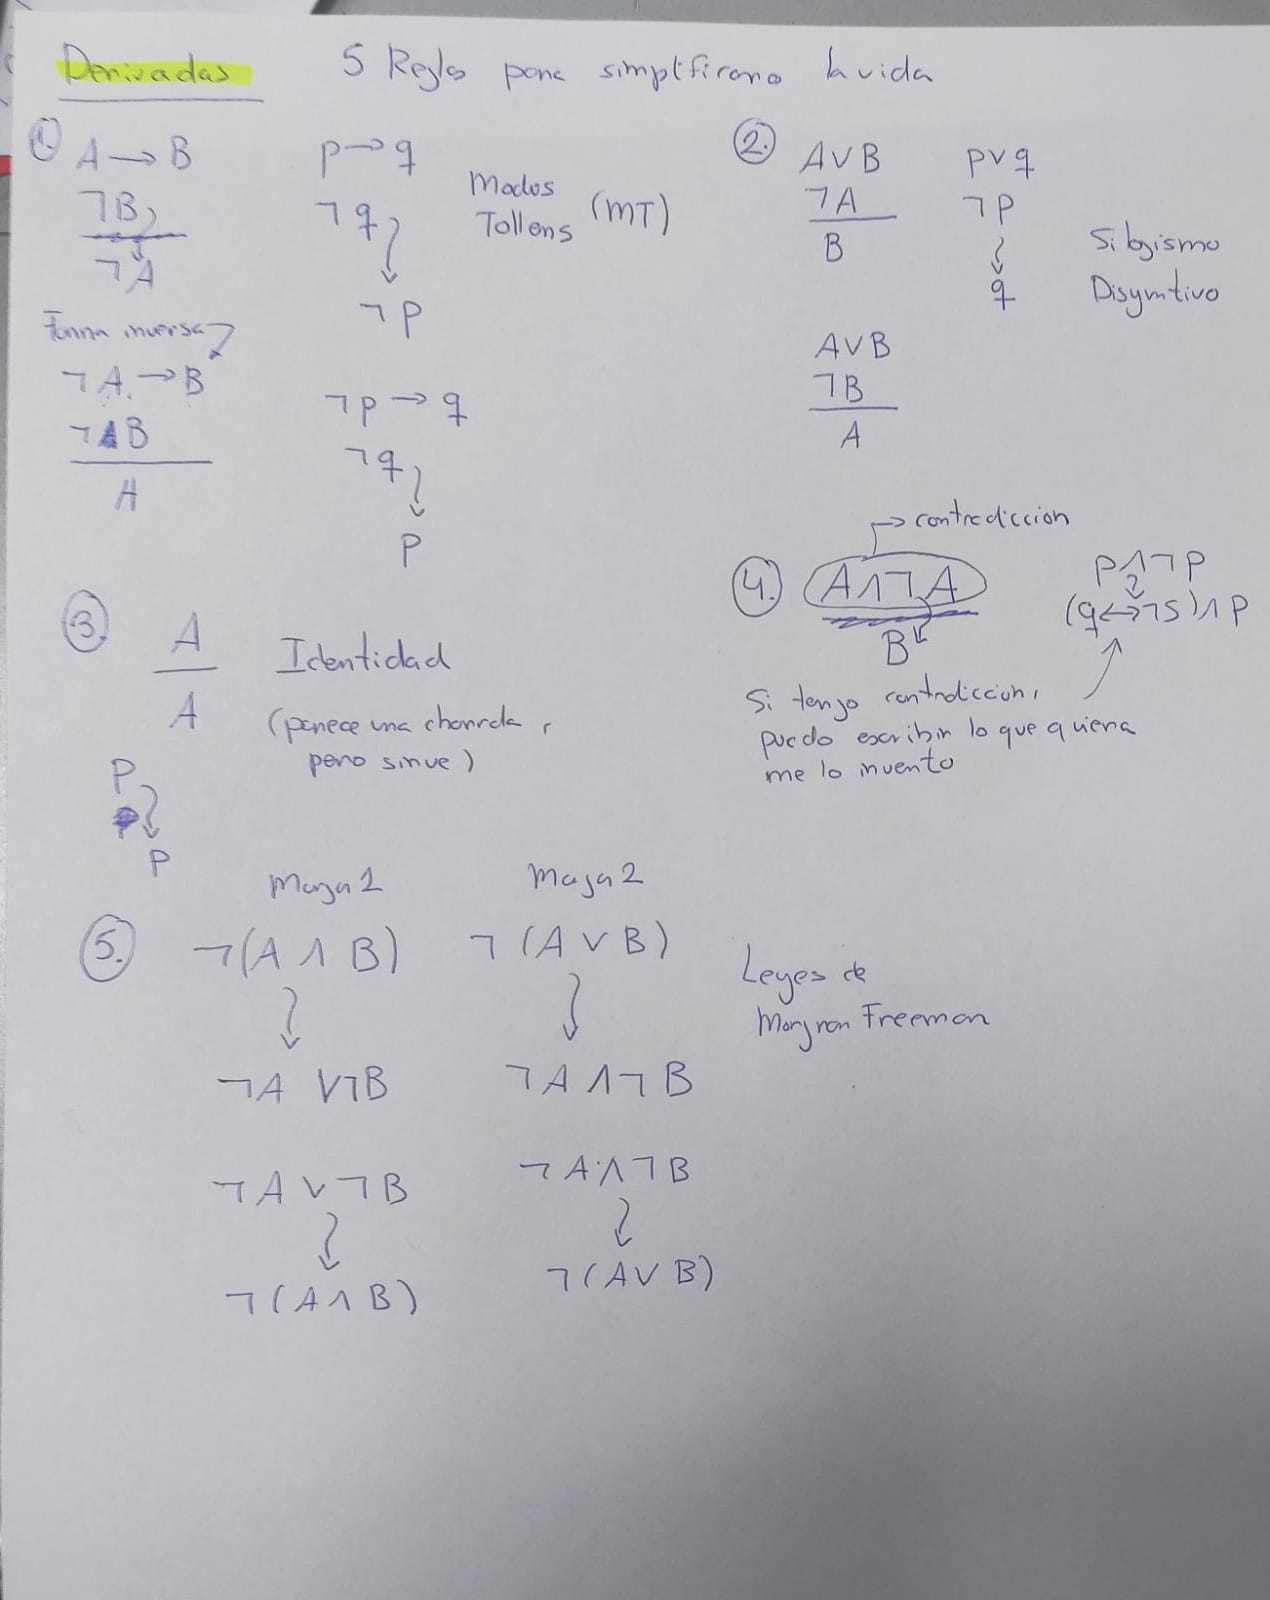 Derivadas 5 Reglas para simplificarnos la vida
1. A → B
¬B
¬A
p → q
¬q
¬p
Modus
Tollens (MT)
Forma inversa
¬A → B
¬B
A
¬p → q
¬q
p
2. A ∨ B
¬A
B
p ∨ q
¬p
q
Silogismo
Disyuntivo
A ∨ B
¬B
A
3. A
A
Identidad
(parece una chorrada,
pero sirve)
P
P
4. A ∧ ¬A
B
→ contradiccion
P ∧ ¬P
(q ↔ ¬s) ∧ P
Si tengo contradiccion,
puedo escribir lo que quiera
me lo invento
5. ¬(A ∧ B)
¬A ∨ ¬B
¬A ∨ ¬B
¬(A ∧ B)
¬(A ∨ B)
¬A ∧ ¬B
¬A ∧ ¬B
¬(A ∨ B)
Leyes de
Morgan Freeman